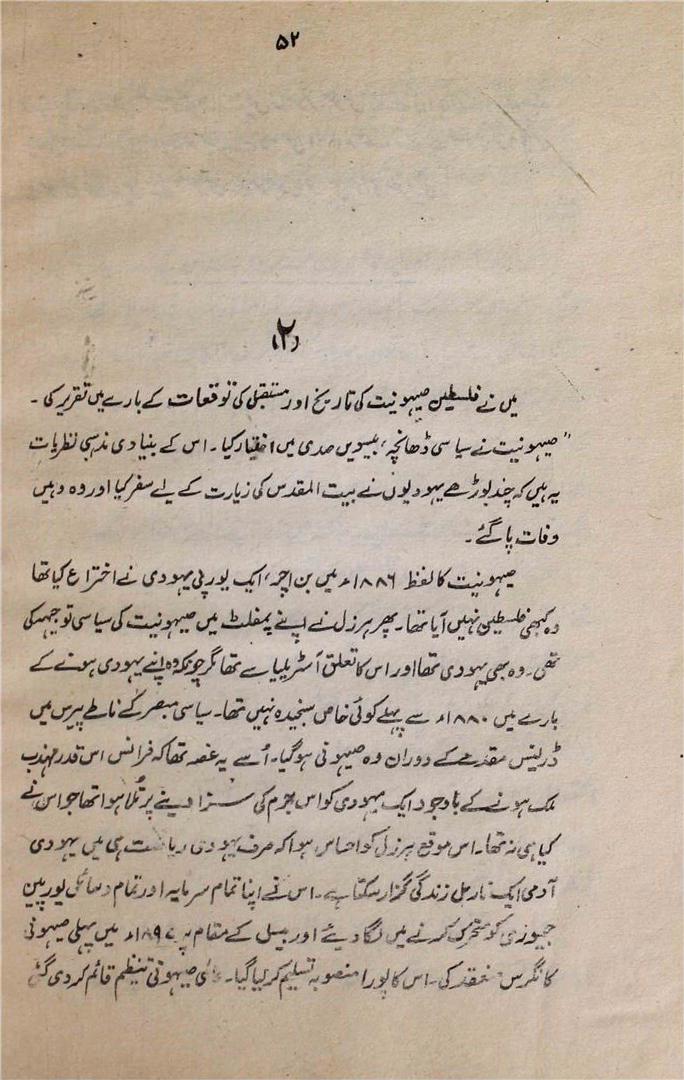 ۵۲
(۲)
میں نے فلسطین صیہونیت کی تاریخ اور مستقبل کی توقعات کے بارے میں تقریر کی ۔
"صیہونیت نے سیاسی ڈھانچہ، بیسویں صدی میں اختیار کیا ۔ اس کے بنیادی مذہبی نظریات
یہ ہیں کہ چند بوڑھے یہودیوں نے بیت المقدس کی زیارت کے لیے سفر کیا اور وہ وہیں
وفات پا گئے ۔
صیہونیت کا لفظ ۱۸۸۶ء میں بن اچر، ایک یورپی یہودی نے اختراع کیا تھا
وہ کبھی فلسطین نہیں آیا تھا۔ پھر ہرزل نے اپنے پمفلٹ میں صیہونیت کی سیاسی توجیہہ کی
تھی۔ وہ بھی یہودی تھا اور اس کا تعلق آسٹریلیا سے تھا مگر چونکہ وہ اپنے یہودی ہونے کے
بارے میں ۱۸۸۰ء سے پہلے کوئی خاص سنجیدہ نہیں تھا۔ سیاسی مبصر کے ناطے پیرس میں
ڈریفس مقدمے کے دوران وہ صیہونی ہو گیا۔ اُسے یہ غصہ تھا کہ فرانس اس قدر مہذب
ملک ہونے کے باوجود ایک یہودی کو اس جرم کی سزا دینے پر تُلا ہوا تھا جو اس نے
کیا ہی نہ تھا۔ اس موقع ہرزل کو احساس ہوا کہ صرف یہودی ریاست ہی میں یہودی
آدمی ایک نارمل زندگی گزار سکتا ہے۔ اس نے اپنا تمام سرمایہ اور تمام وسائل یورپین
جیوزی کو متحرک کرنے میں لگا دیئے اور بیسل کے مقام پر ۱۸۹۷ء میں پہلی صیہونی
کانگرس منعقد کی۔ اس کا پورا منصوبہ تسلیم کر لیا گیا۔ عالمی صیہونی تنظیم قائم کر دی گئی